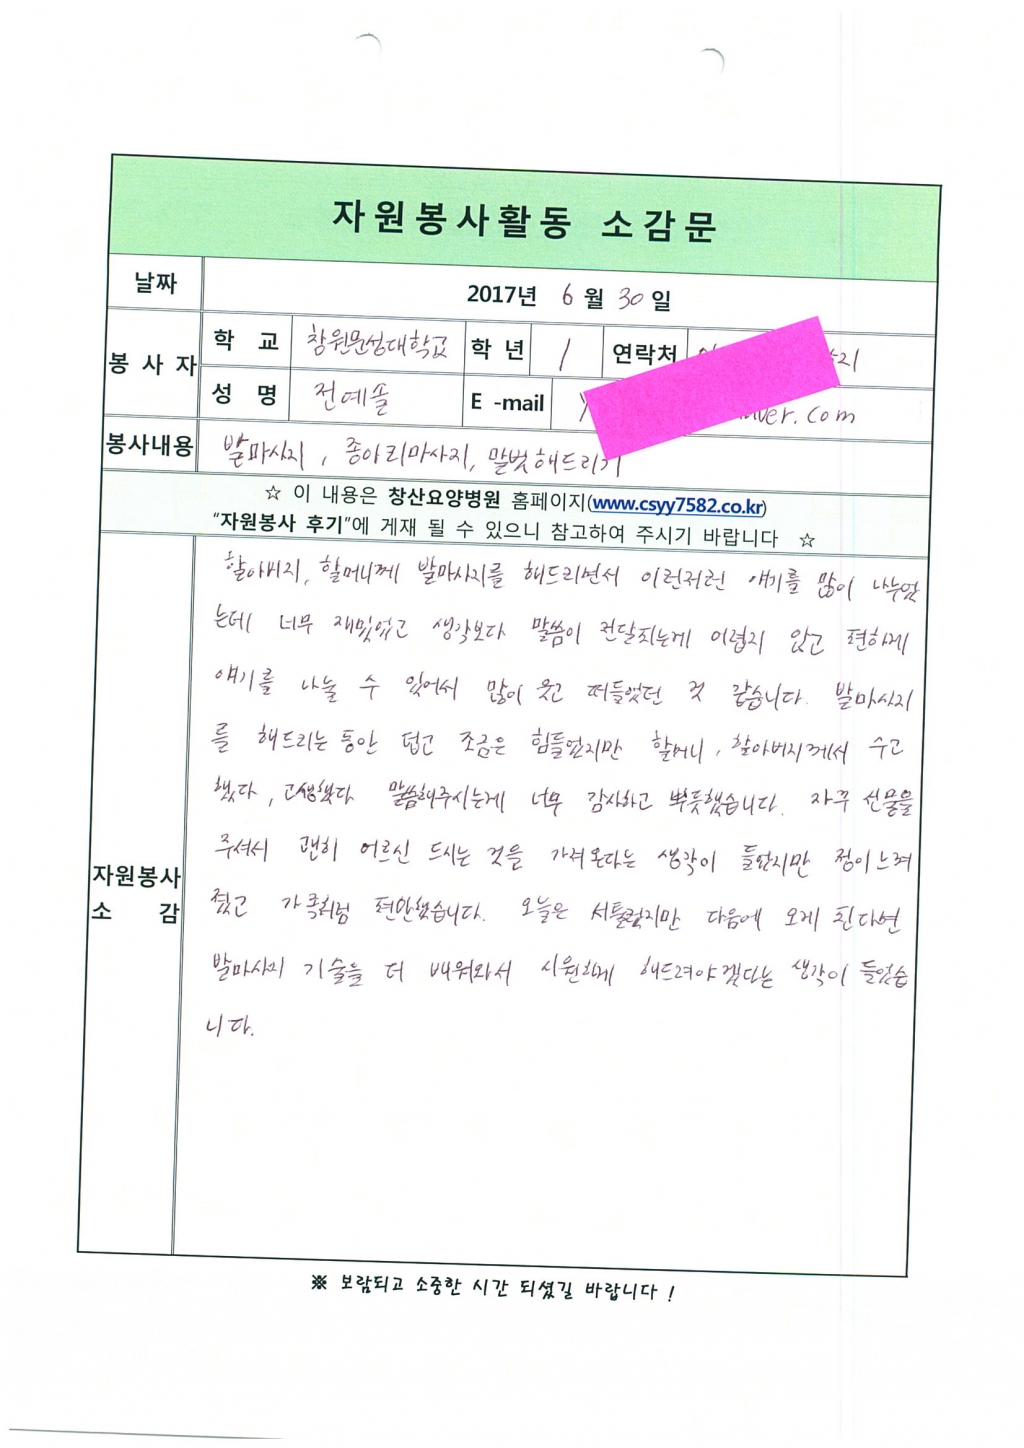 자원봉사활동 소감문
날짜 2017년 6월 30일
봉사자 학교 창원문성대학교 학년 1 연락처
성명 전예솔 E-mail .com
봉사내용 발마사지, 종아리마사지, 말벗해드리기
☆ 이 내용은 창산요양병원 홈페이지(www.csyy7582.co.kr)
"자원봉사 후기"에 게재 될 수 있으니 참고하여 주시기 바랍니다 ☆
자원봉사 소감
할아버지, 할머니께 발마사지를 해드리면서 이런저런 얘기를 많이 나누었
는데 너무 재밌었고 생각보다 말씀이 전달되는게 어렵지 않고 편하게
얘기를 나눌 수 있어서 많이 웃고 떠들었던 것 같습니다. 발마사지
를 해드리는 동안 덥고 조금은 힘들었지만 할머니, 할아버지께서 수고
했다, 고생했다 말씀해주시는게 너무 감사하고 뿌듯했습니다. 자꾸 선물을
주셔서 괜히 어르신 드시는 것을 가져온다는 생각이 들었지만 정이 느껴
졌고 가족처럼 편안했습니다. 오늘은 서툴렀지만 다음에 오게 된다면
발마사지 기술을 더 배워와서 시원하게 해드려야겠다는 생각이 들었습
니다.
※ 보람되고 소중한 시간 되셨길 바랍니다!